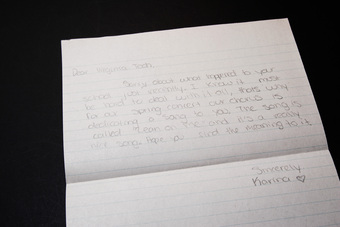 Dear Virginia Tech,
Sorry about what happened to your
school just recently. I know it must
be hard to deal with it all, that's why
for our spring concert our chorus is
dedicating a song to you. The song is
called "Lean on Me" and it's a really
nice song. hope you find the meaning to it.
Sincerely,
Karina